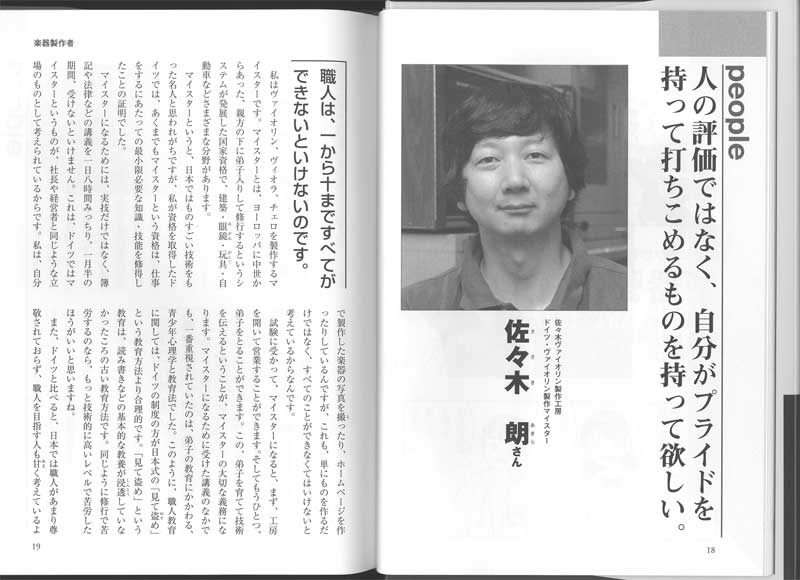 people
人の評価ではなく、自分がプライドを
持って打ちこめるものを持って欲しい。
佐々木ヴァイオリン製作工房
ドイツ・ヴァイオリン製作マイスター
佐々木 朗さん
ささき あきら
18
楽器製作者
職人は、一から十まですべてが
できないといけないのです。
私はヴァイオリン、ヴィオラ、チェロを製作するマ
イスターです。マイスターとは、ヨーロッパに中世か
らあった、親方の下に弟子入りして修行するというシ
ステムが発展した国家資格で、建築・眼鏡・玩具・自
動車などさまざまな分野があります。
マイスターというと、日本ではものすごい技術をも
った名人と思われがちですが、私が資格を取得したド
イツでは、あくまでもマイスターという資格は、仕事
をするにあたっての最小限必要な知識・技能を修得し
たことの証明でした。
マイスターになるためには、実技だけではなく、簿
記や法律などの講義を一日八時間みっちり、一月半の
期間、受けないといけません。これは、ドイツではマ
イスターというものが、社長や経営者と同じような立
場のものとして考えられているからです。私は、自分
で製作した楽器の写真を撮ったり、ホームページを作
ったりしているんですが、これも、単にものを作るだ
けではなく、すべてのことができなくてはいけないと
考えているからなんです。
試験に受かって、マイスターになると、まず、工房
を開いて営業することができます。そしてもうひとつ、
弟子をとることができます。この、弟子を育てて技術
を伝えるということが、マイスターの大切な義務にな
ります。マイスターになるために受けた講義のなかで
も、一番重視されていたのは、弟子の教育にかかわる、
青少年心理学と教育法でした。このように、職人教育
に関しては、ドイツの制度の方が日本式の「見て盗め」
という教育方法より合理的です。「見て盗め」という
教育は、読み書きなどの基本的な教養が浸透していな
かったころの古い教育方法です。同じように修行で苦
労するのなら、もっと技術的に高いレベルで苦労した
ほうがいいと思いますね。
また、ドイツと比べると、日本では職人があまり尊
敬されておらず、職人を目指す人も甘く考えているよ
19